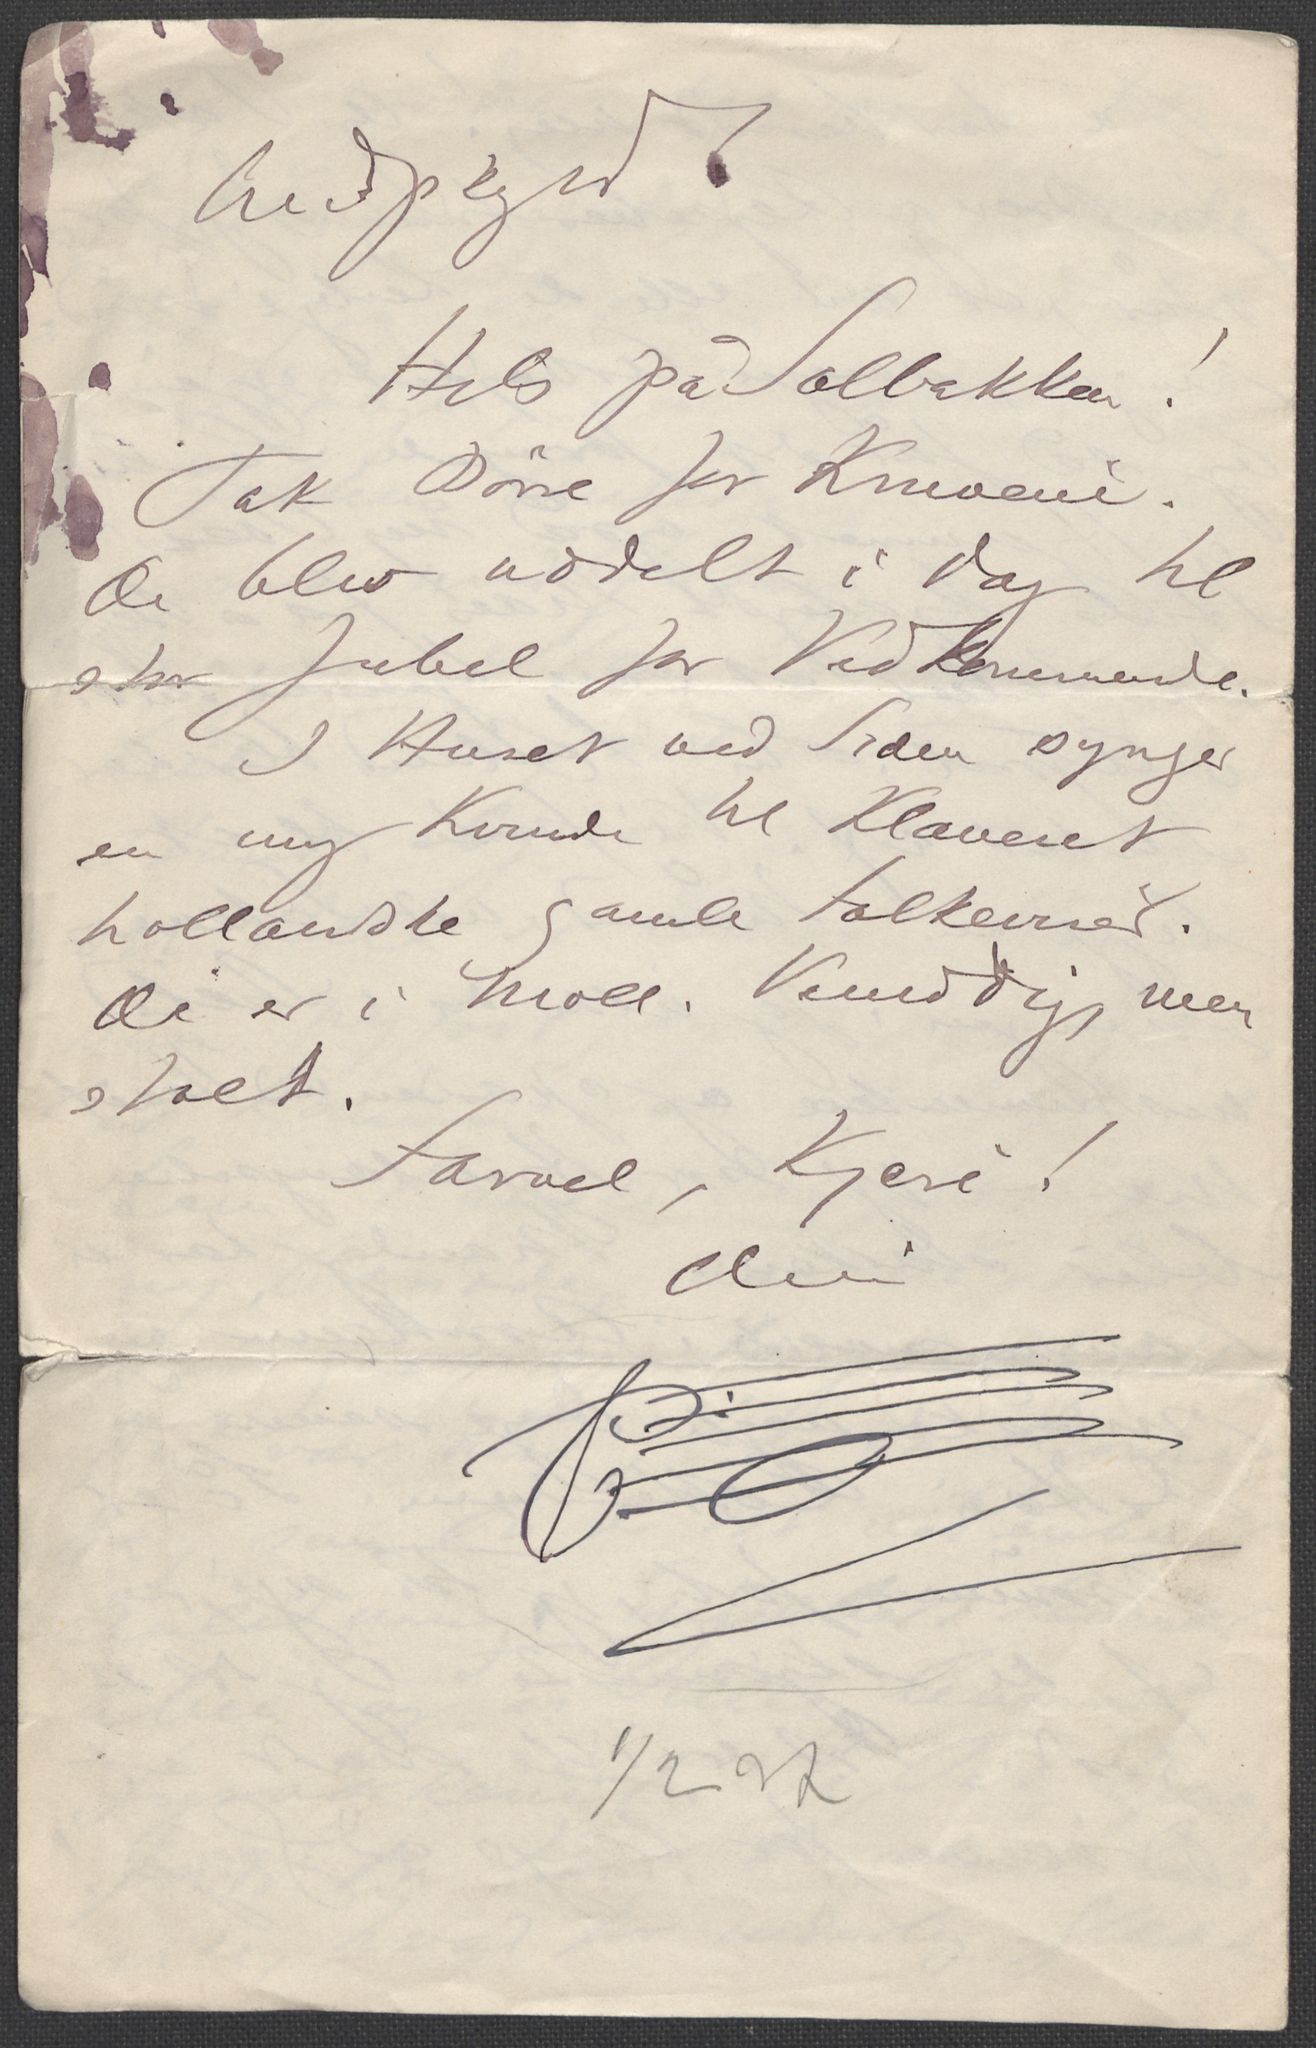 Hils på Solbakken!
Tak Börre for Knivene.
De blev uddelt i dag til
stor Jubel for Vedkommende.
I Huset ved Siden synger
en ung Kvinde til Klaveret
hollandske gamle Folkeviser.
De er i Moll. Vemodig, men
stolt.
Farvel, Kjere!
Din
1/2 27